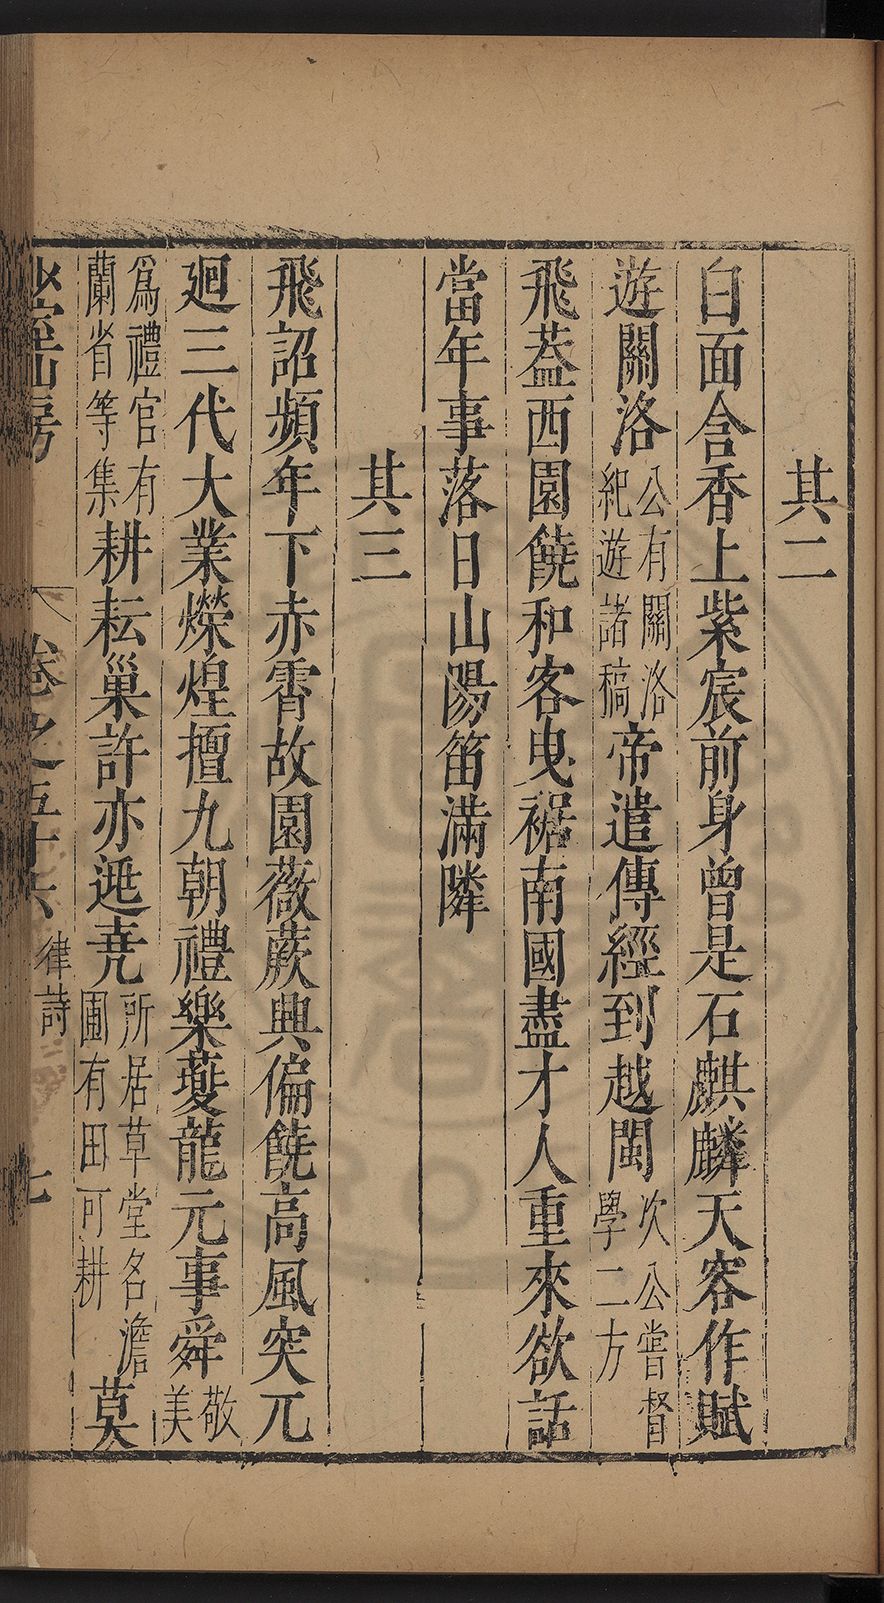 其二
白面含香上紫宸前身曾是石麒麟天容作賦
遊關洛公有關洛紀遊諸稿帝遣傳經到越閩次公嘗督學二方
飛葢西園饒和客曳裾南國盡才人重來欲話
當年事落日山陽笛滿隣
其三
飛詔頻年下赤霄故園薇蕨興偏饒高風突兀
廻三代大業熒煌擅九朝禮樂夔龍元事舜敬美
爲禮官有蘭省等集耕耘巢許亦逃堯所居草堂名澹圃有田可耕莫
山房 卷之五十六 律詩 七